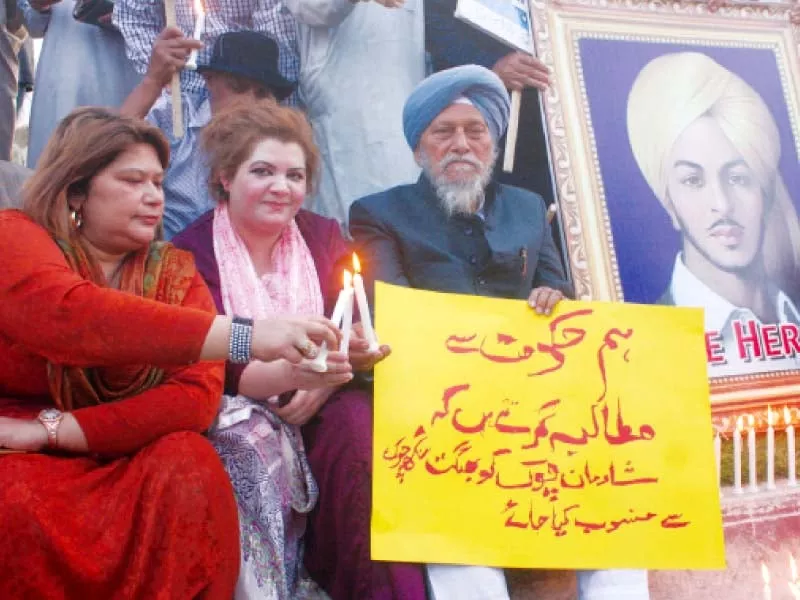 ہم حکومت سے
مطالبہ کرتے ہیں کہ
شادمان چوک کو بھگت سنگھ چوک
سے منسوب کیا جائے
HER